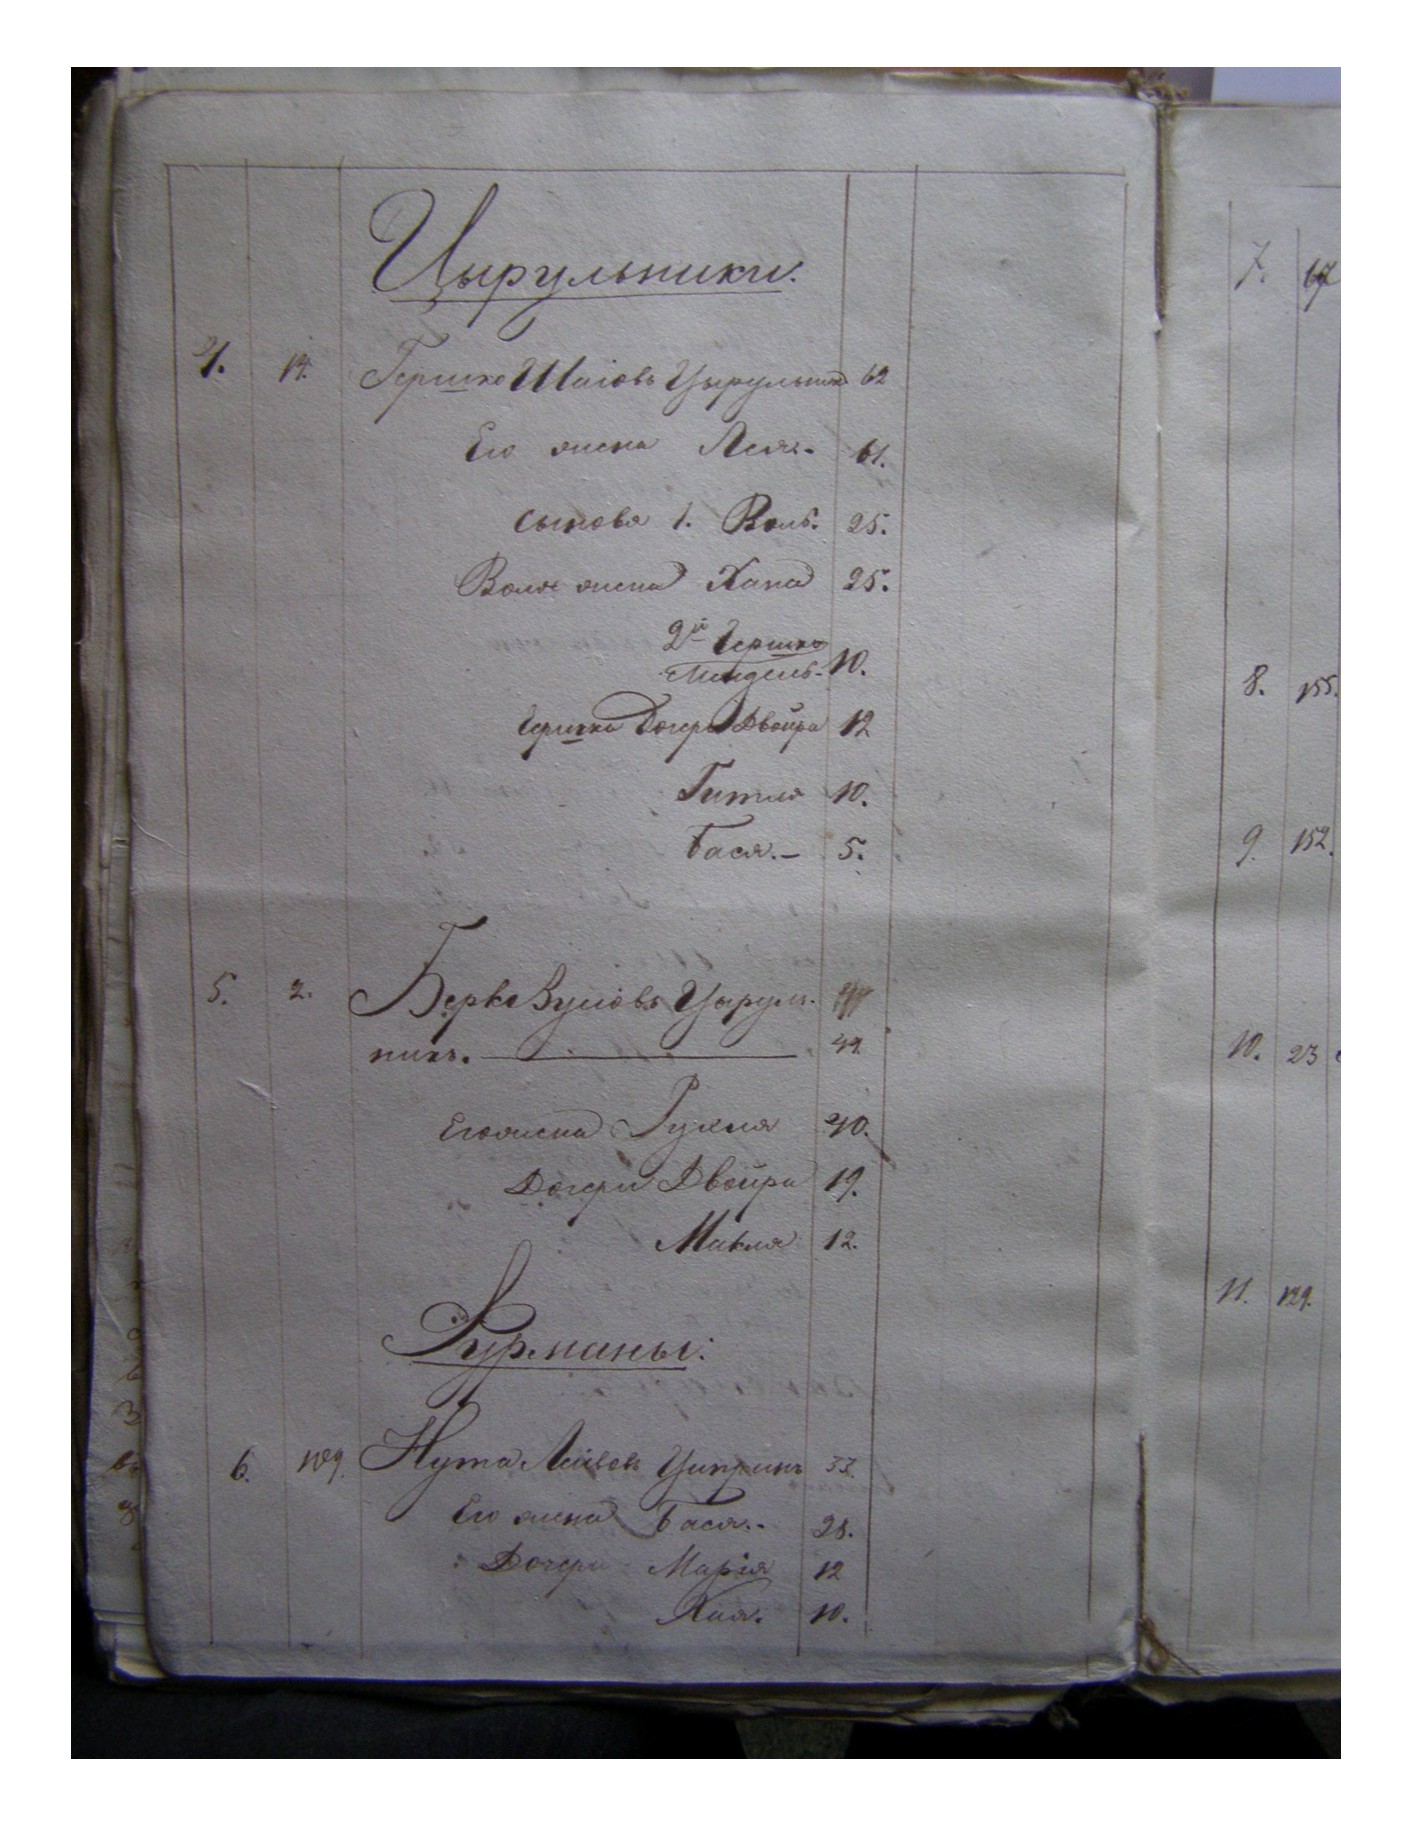 Цырульники:
4. 14. Гершко Шаіовъ Цырульникъ 62
Его жена Лея.- 61.
Сыновья 1. Воль. 25.
Воля жена Хана 25.
2й Гершко
Мендель- 10.
Гершка дочери Двойра 12
Гитля 10.
Бася.- 5.
5. 2. Берко Зусіовъ Цыруль-
никъ. 44.
Его жена Рухля 40.
Дочери Двойра 19.
Макля 12.
Фурманы:
6. 109. Нута Лейбовъ 33.
Его жена Бася.- 28.
Дочери Марія 12
Хая. 10.
7. 67
8. 155.
9. 152.
10. 23
11. 129.